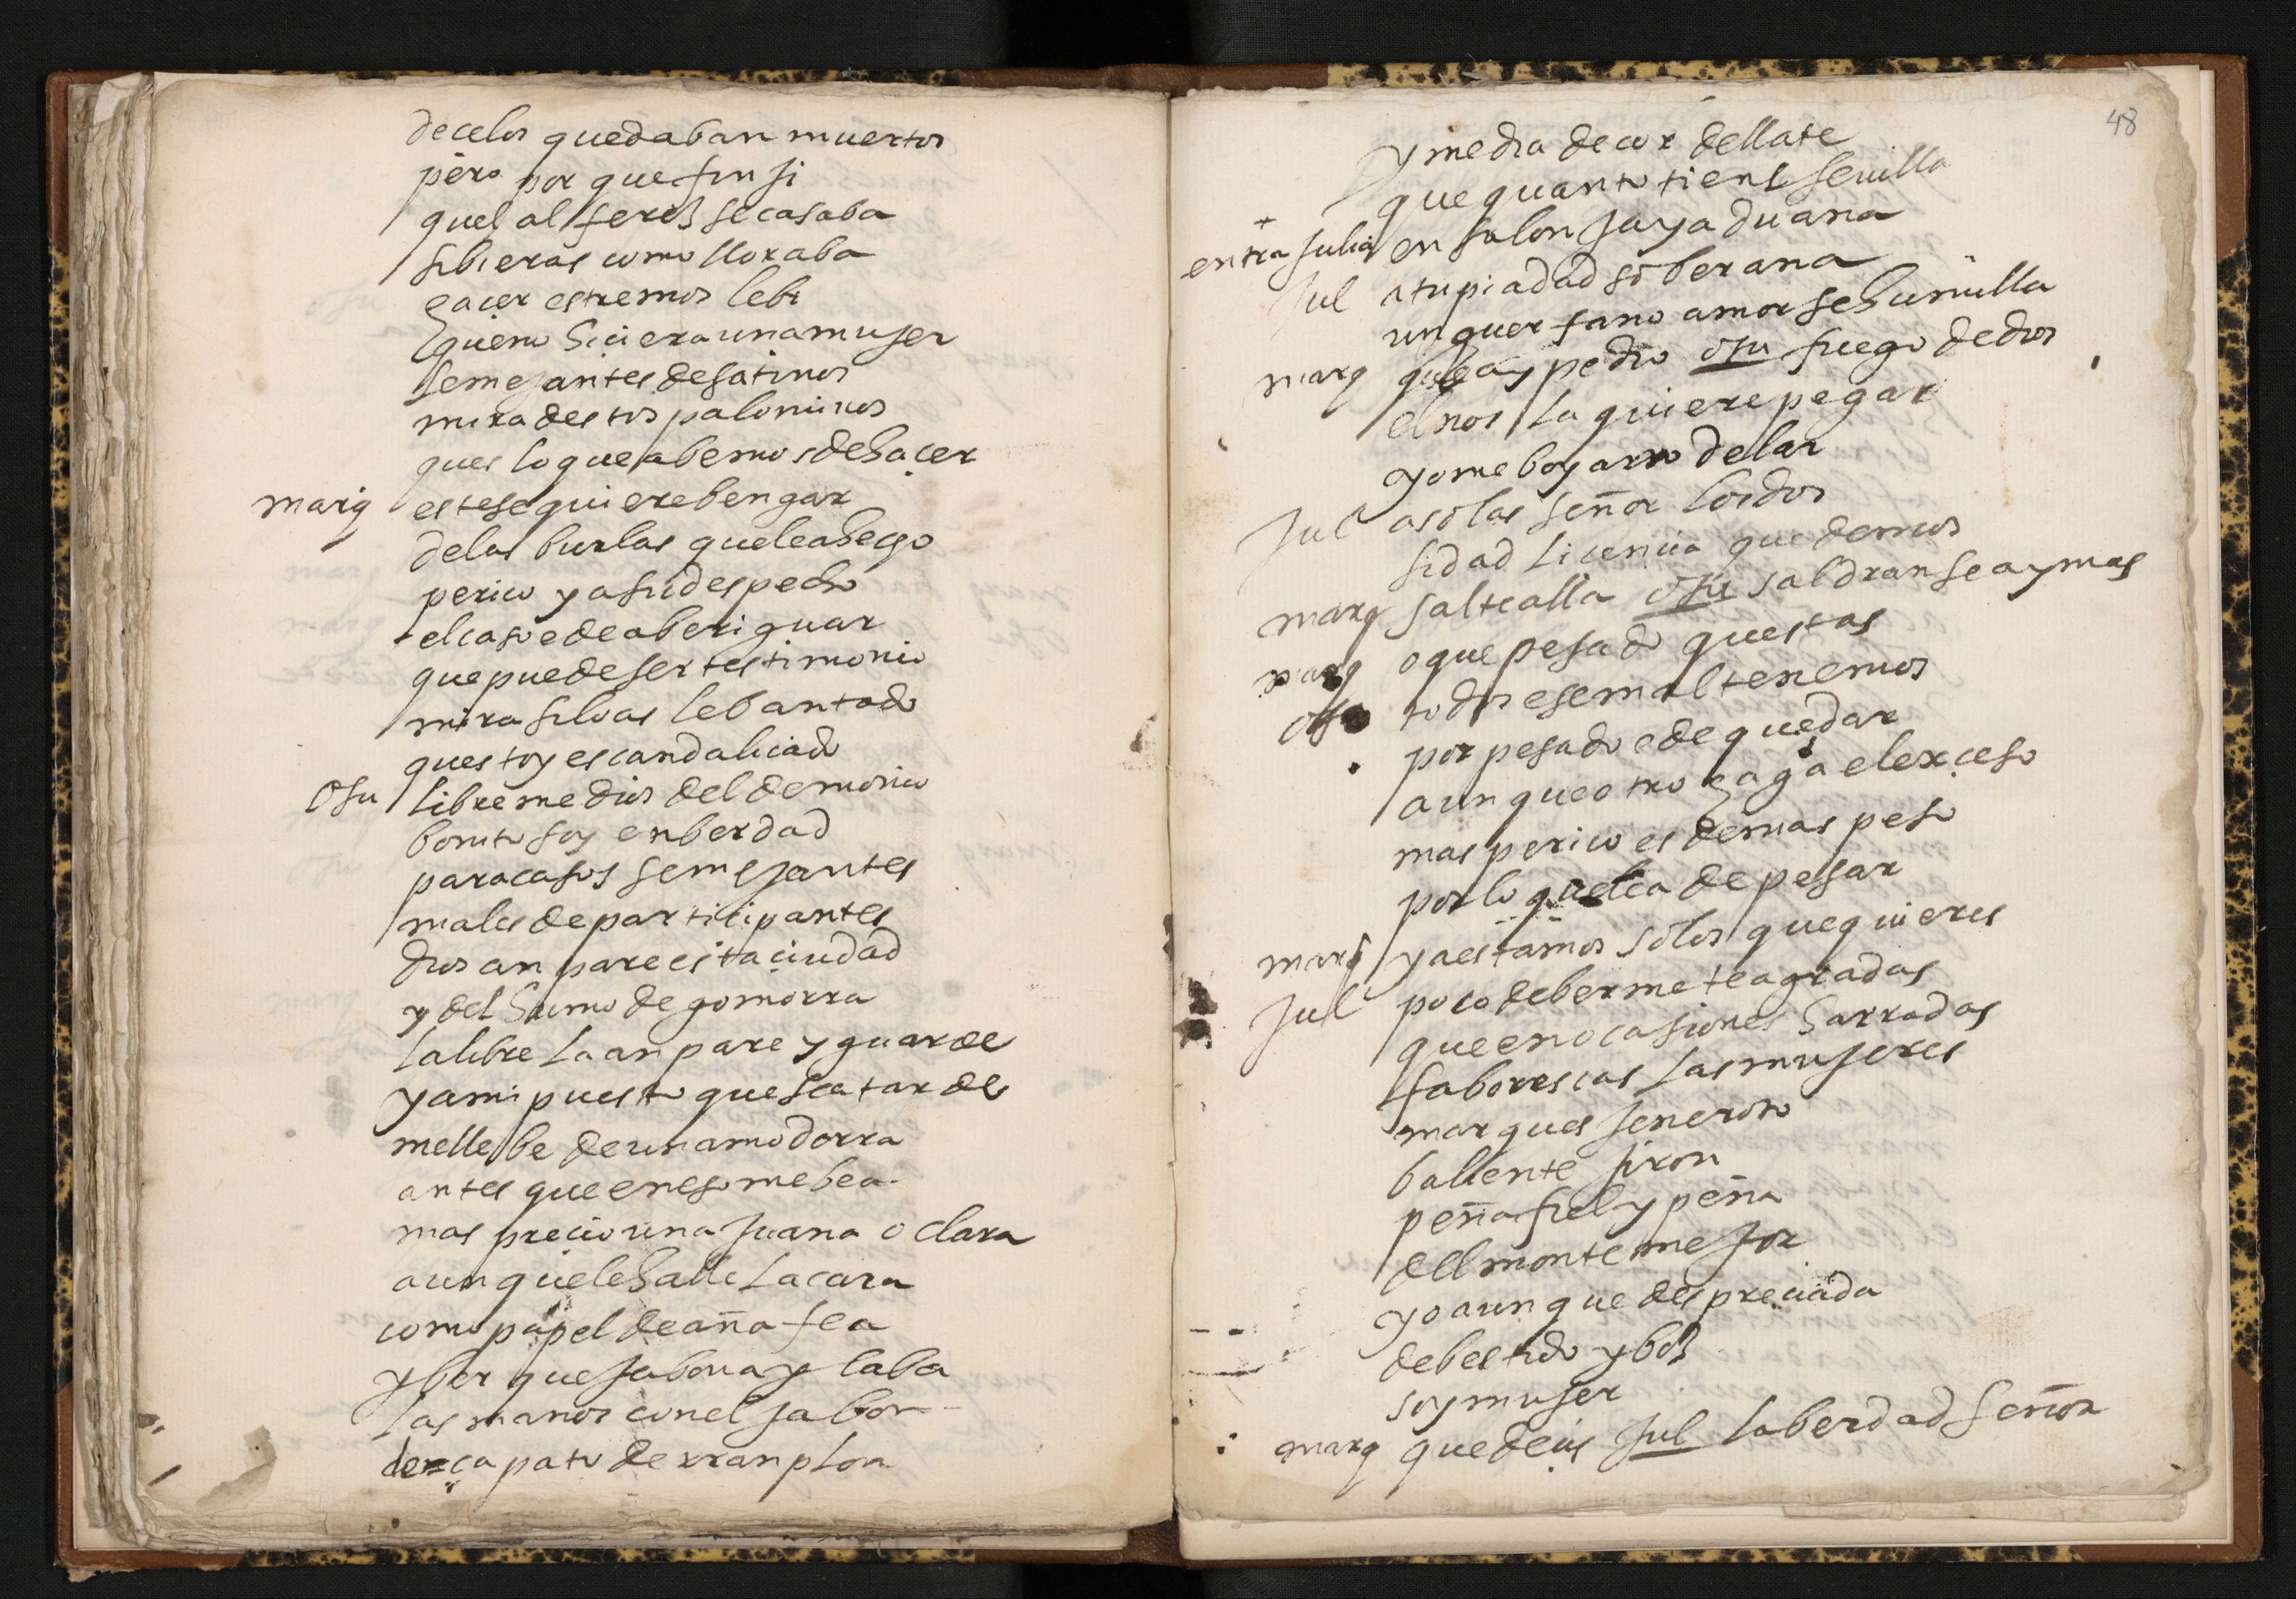 de celos quedaban muertos
pero por que finji
quel alferes se casaba
si bieras como lloraba
hacer estremos le bi
quien hiciera una muger
semejantes desatinos
mira destos palominos
ques lo que abemos de hacer
marq este se quiere bengar
de las burlas que lea hecho
perico y a su despecho
el caso e de aberiguar
que puede ser testimonio
mira silbas lebantado
questoy escandaliçado
Osu libreme dios del demonio
bonito soy en berdad
para casos semejantes
males de participantes
dios anpare esta çiudad
y del humo de gomorra
la libre la anpare y guarde
y a mi puesto que sea tarde
me llebe de una modorra
antes que en eso me bea
mas precio una juana o clara
aunque le halle la cara
como papel de aña fea
y ber que jabona y laba
las manos con el jabon
de çapato de rranplon
48
y media de cor dellate
que quanto tiene sevilla
entra julia en su lonja y aduana
Jul a tu piadad soberana
un guerfano amor se humilla
marq que ay pedro osu fuego de dios
el nos la quiere pegar
yo me boy a rrodelar
Jul a solas señor los dos
si dad licencia quedemos
marq salte alla osu saldranse ay mas
marq o que pesado questas
osu todos ese mal tenemos
por pesado e de quedar
aunque otro haga el exçeso
mas perico es de mas peso
por lo que lea de pesar
marq ya estamos solos que quieres
Jul poco deberme te agradas
que en ocasiones harradas
faborescas las mujeres
marques jeneroso
baliente jiron
peñafiel y peña
del monte mejor
yo aunque despreciada
de bestido y bos
soy mujer
marq que deçis Jul la berdad señor